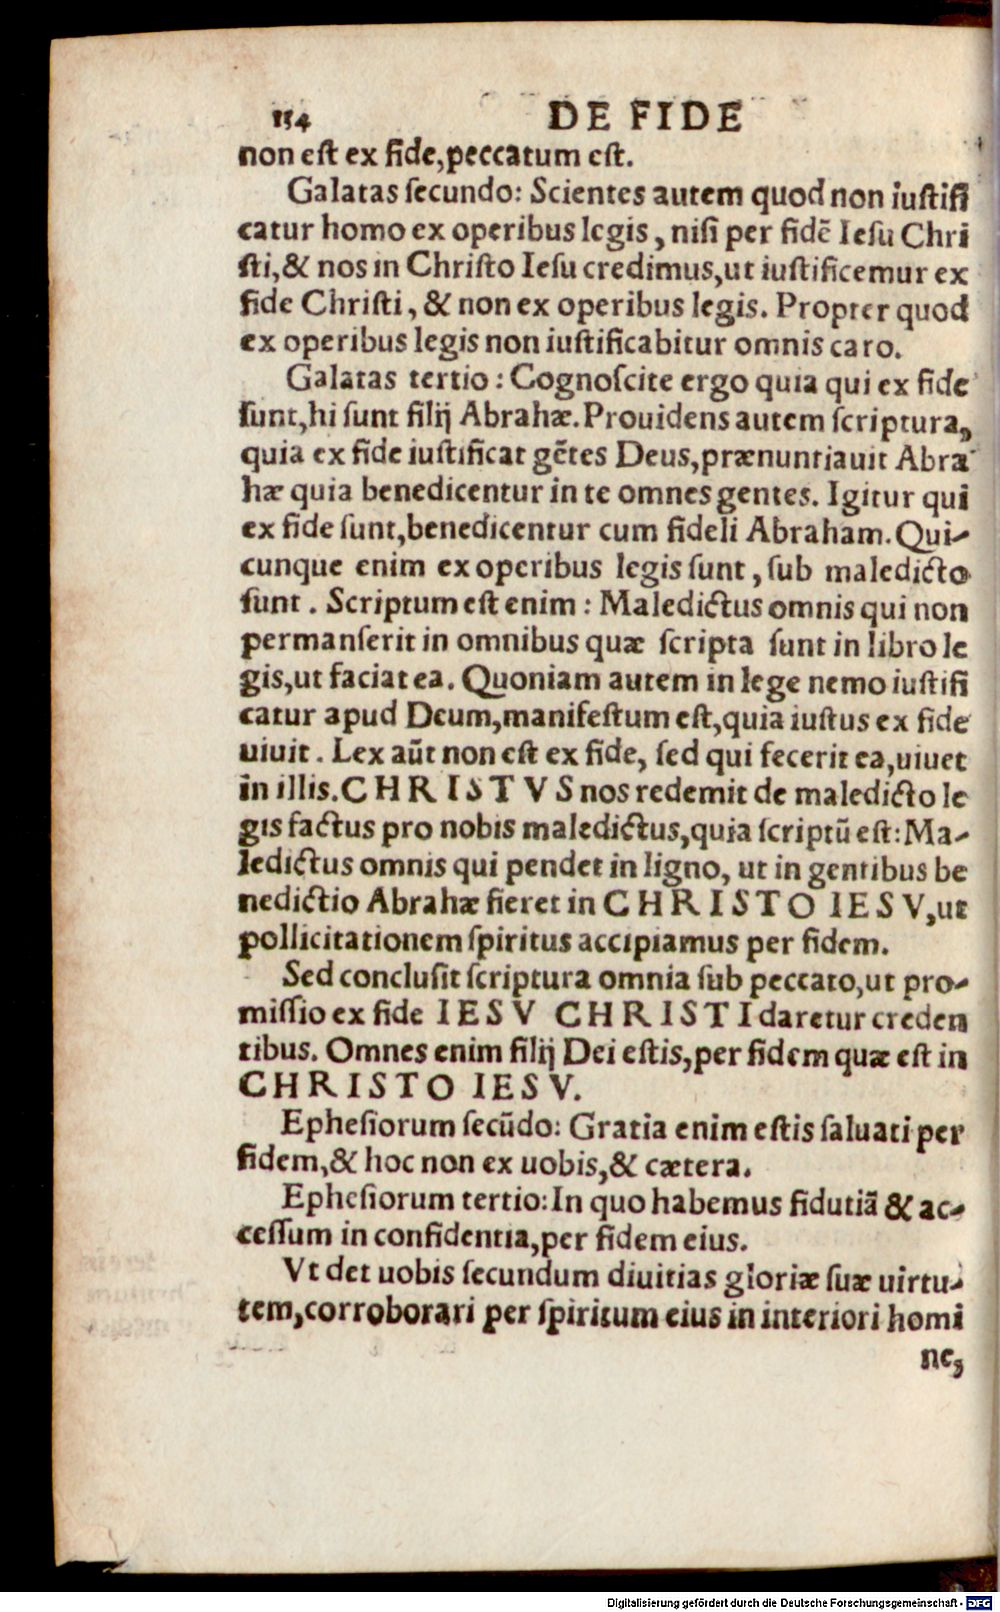 154 DE FIDE
non est ex fide, peccatum est.
Galatas secundo: Scientes autem quod non iustifi
catur homo ex operibus legis, nisi per fidē Iesu Chri
sti, & nos in Christo Iesu credimus, ut iustificemur ex
fide Christi, & non ex operibus legis. Propter quod
ex operibus legis non iustificabitur omnis caro.
Galatas tertio: Cognoscite ergo quia qui ex fide
sunt, hi sunt filij Abrahæ. Prouidens autem scriptura,
quia ex fide iustificat gētes Deus, prænuntiauit Abra
hæ quia benedicentur in te omnes gentes. Igitur qui
ex fide sunt, benedicentur cum fideli Abraham. Qui-
cunque enim ex operibus legis sunt, sub maledicto
sunt. Scriptum est enim: Maledictus omnis qui non
permanserit in omnibus quæ scripta sunt in libro le
gis, ut faciat ea. Quoniam autem in lege nemo iustifi
catur apud Deum, manifestum est, quia iustus ex fide
uiuit. Lex aūt non est ex fide, sed qui fecerit ea, uiuet
in illis. CHRISTVS nos redemit de maledicto le
gis factus pro nobis maledictus, quia scriptū est: Ma-
ledictus omnis qui pendet in ligno, ut in gentibus be
nedictio Abrahæ fieret in CHRISTO IESV, ut
pollicitationem spiritus accipiamus per fidem.
Sed conclusit scriptura omnia sub peccato, ut pro-
missio ex fide IESV CHRISTI daretur creden
tibus. Omnes enim filij Dei estis, per fidem quæ est in
CHRISTO IESV.
Ephesiorum secūdo: Gratia enim estis saluati per
fidem, & hoc non ex uobis, & cætera.
Ephesiorum tertio: In quo habemus fidutiā & ac-
cessum in confidentia, per fidem eius.
Vt det uobis secundum diuitias gloriæ suæ uirtu-
tem, corroborari per spiritum eius in interiori homi
ne,
Digitalisierung gefördert durch die Deutsche Forschungsgemeinschaft - DFG